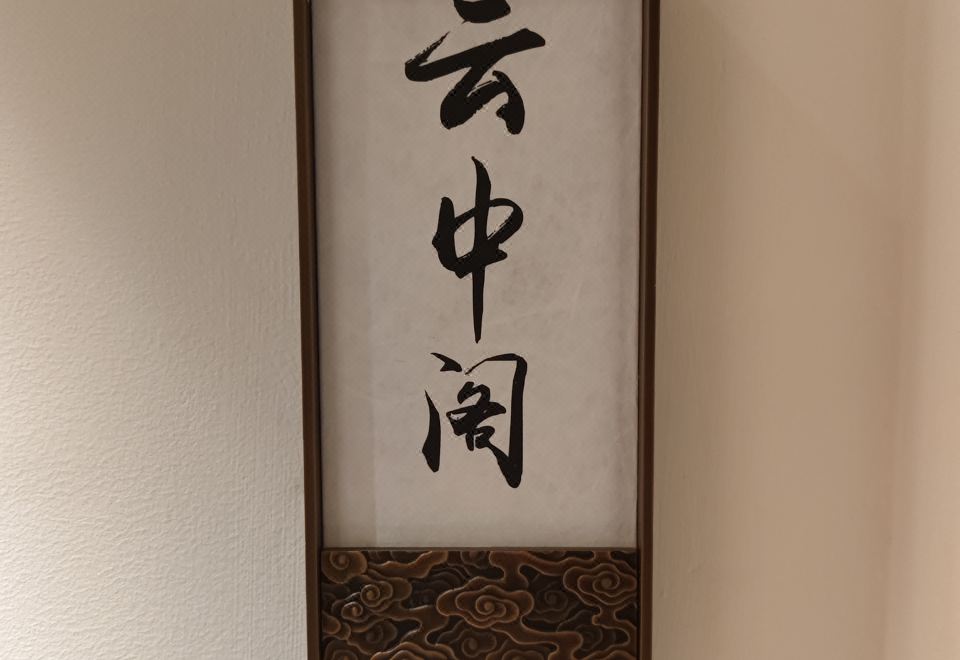 云中阁